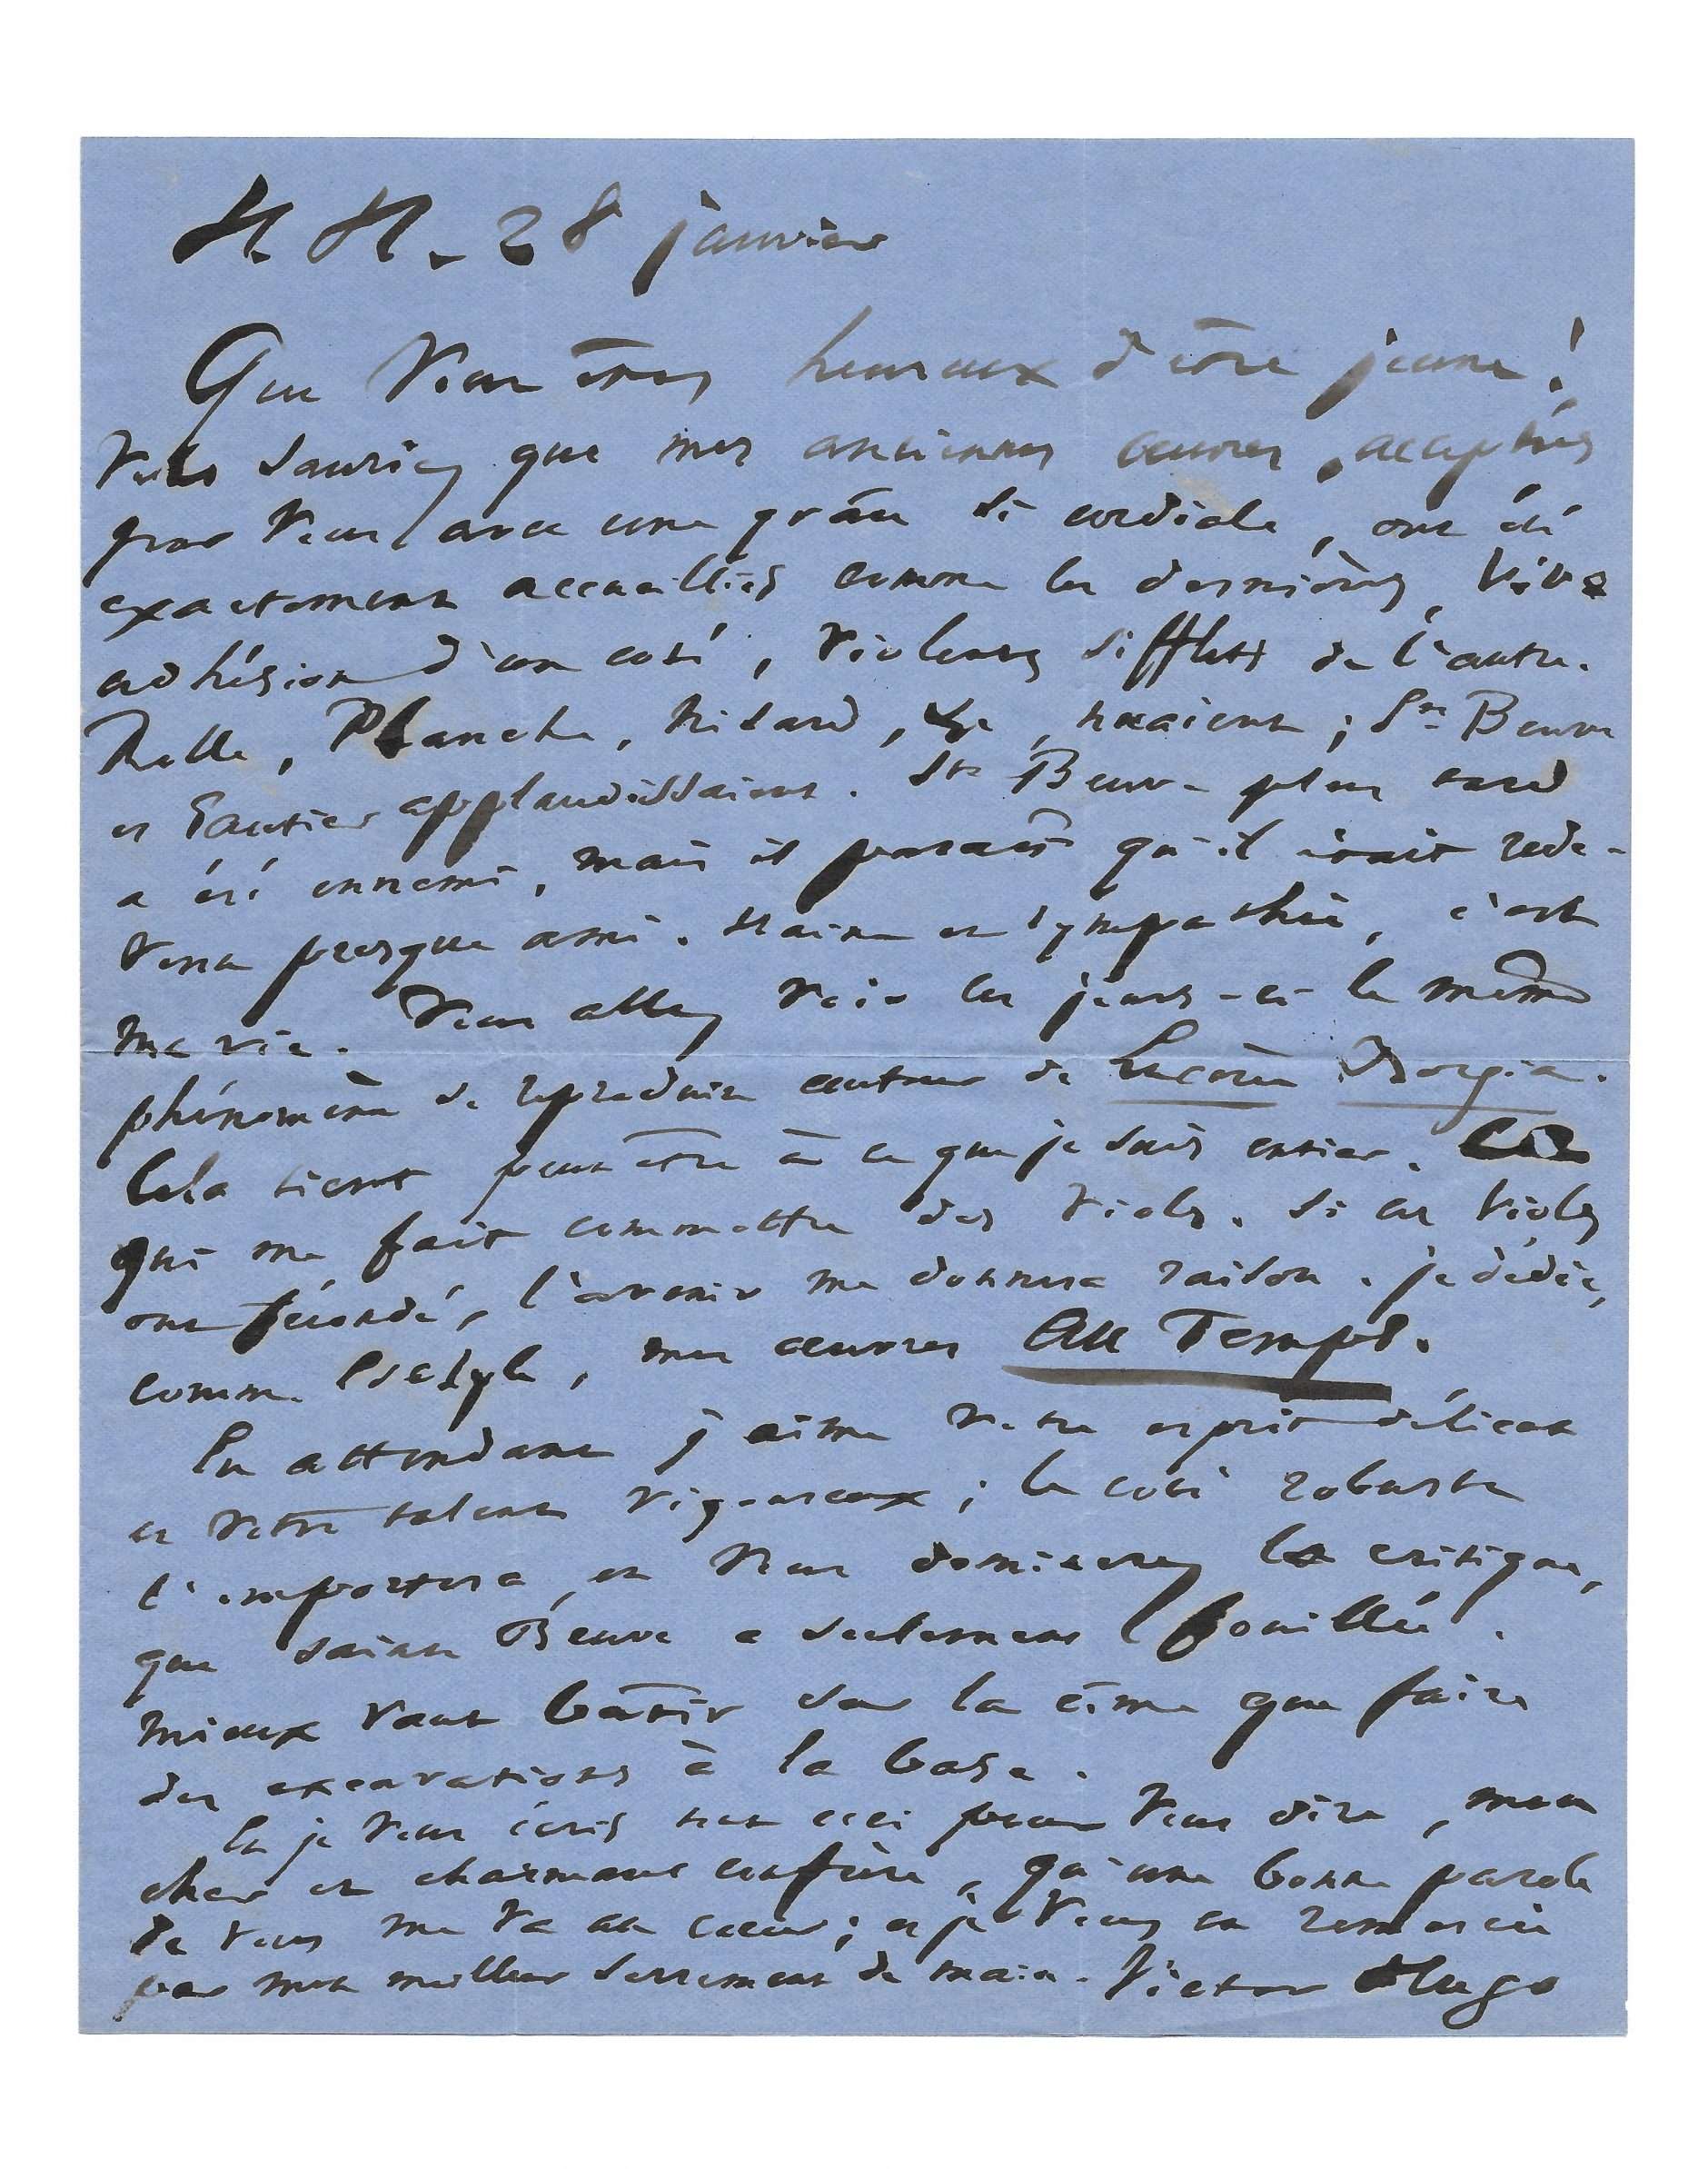 H. H. - 28 janvier
Que Vous êtes heureux d'être jeune !
Vous sauriez que mes anciennes œuvres, acceptées
par Vous avec une grâce si cordiale, ont été
exactement accueillies comme les dernières, Vive
adhésion d'un côté, Violents sifflets de l'autre.
Rolle, Planche, Nisard, &c, huaient ; Ste Beuve
et Gautier applaudissaient. Ste Beuve plus tard
a été ennemi, mais il paraît qu'il était rede-
venu presque ami. Haine et sympathie, c'est
ma vie. Vous allez voir ces jours-ci le même
phénomène se reproduire autour de Lucrèce Borgia.
Cela tient peut être à ce que je suis entier.
qui me fait commettre des viols. Si ces viols
ont fécondé, l'avenir me donnera raison. je dédie,
comme Eschyle, mes œuvres Au Temps.
En attendant j'aime votre esprit délicat
et votre talent vigoureux ; le côté robuste
l'emportera, et Vous dominerez la critique,
que Sainte Beuve a seulement fouillée.
Mieux vaut bâtir sur la cîme que faire
des excavations à la base.
Et je Vous écris tout ceci pour Vous dire, mon
cher et charmant confrère, qu'une bonne parole
de vous me va au cœur ; et je Vous en remercie
par mon meilleur serrement de main. Victor Hugo